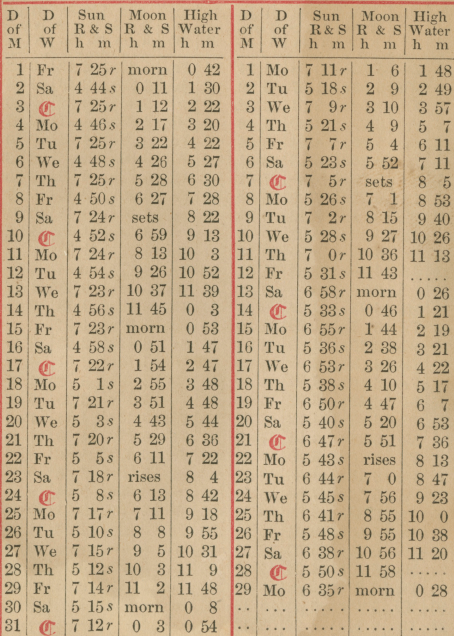 D D Sun Moon High
of of R & S R & S Water
M W h m h m h m
1 Fr 7 25 r morn 0 42
2 Sa 4 44 s 0 11 1 30
3 C 7 25 r 1 12 2 22
4 Mo 4 46 s 2 17 3 20
5 Tu 7 25 r 3 22 4 22
6 We 4 48 s 4 26 5 27
7 Th 7 25 r 5 28 6 30
8 Fr 4 50 s 6 27 7 28
9 Sa 7 24 r sets 8 22
10 C 4 52 s 6 59 9 13
11 Mo 7 24 r 8 13 10 3
12 Tu 4 54 s 9 26 10 52
13 We 7 23 r 10 37 11 39
14 Th 4 56 s 11 45 0 3
15 Fr 7 23 r morn 0 53
16 Sa 4 58 s 0 51 1 47
17 C 7 22 r 1 54 2 47
18 Mo 5 1 s 2 55 3 48
19 Tu 7 21 r 3 51 4 48
20 We 5 3 s 4 43 5 44
21 Th 7 20 r 5 29 6 36
22 Fr 5 5 s 6 11 7 22
23 Sa 7 18 r rises 8 4
24 C 5 8 s 6 13 8 42
25 Mo 7 17 r 7 11 9 18
26 Tu 5 10 s 8 8 9 55
27 We 7 15 r 9 5 10 31
28 Th 5 12 s 10 3 11 9
29 Fr 7 14 r 11 2 11 48
30 Sa 5 15 s morn 0 8
31 C 7 12 r 0 3 0 54
D D Sun Moon High
of of R & S R & S Water
M W h m h m h m
1 Mo 7 11 r 1 6 1 48
2 Tu 5 18 s 2 9 2 49
3 We 7 9 r 3 10 3 57
4 Th 5 21 s 4 9 5 7
5 Fr 7 7 r 5 4 6 11
6 Sa 5 23 s 5 52 7 11
7 C 7 5 r sets 8 5
8 Mo 5 26 s 7 1 8 53
9 Tu 7 2 r 8 15 9 40
10 We 5 28 s 9 27 10 26
11 Th 7 0 r 10 36 11 13
12 Fr 5 31 s 11 43 .....
13 Sa 6 58 r morn 0 26
14 C 5 33 s 0 46 1 21
15 Mo 6 55 r 1 44 2 19
16 Tu 5 36 s 2 38 3 21
17 We 6 53 r 3 26 4 22
18 Th 5 38 s 4 10 5 17
19 Fr 6 50 r 4 47 6 7
20 Sa 5 40 s 5 20 6 53
21 C 6 47 r 5 51 7 36
22 Mo 5 43 s rises 8 13
23 Tu 6 44 r 7 0 8 47
24 We 5 45 s 7 56 9 23
25 Th 6 41 r 8 55 10 0
26 Fr 5 48 s 9 55 10 38
27 Sa 6 38 r 10 56 11 20
28 C 5 50 s 11 58 .....
29 Mo 6 35 r morn 0 28
.. .. ..... ..... .....
.. .. ..... ..... .....